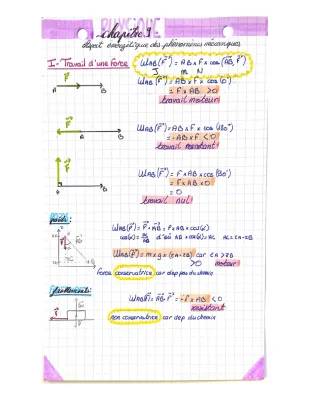 PHYSIQUE
Chapitre 1
Aspect énergétique des phénomènes mécaniques
I- Travail d'une Force
WAB(F→) = AB x F x cos(AB→, F→)
J m N
F→
A B
WAB(F→) = AB x F x cos(0)
= F x AB > 0
travail moteur!
F→
A B
WAB(F→) = AB x F x cos(180°)
= -AB x F < 0
travail résistant!
F→
A B
WAB(F→) = F x AB x cos(90°)
= F x AB x 0
= 0
travail nul!
poids:
WAB(P→) = P→ x AB→ = P x AB x cos(α)
cos(α) = AC/AB d'où AB x cos(α) = AC AC = zA-zB
WAB(P→) = m x g x (zA-zB) car zA > zB
> 0 moteur!
Force conservatrice car dep pas du chemin
frottements:
WAB(f→) = AB→ . f→ = -f x AB < 0
résistant
non conservatrice car dep du chemin